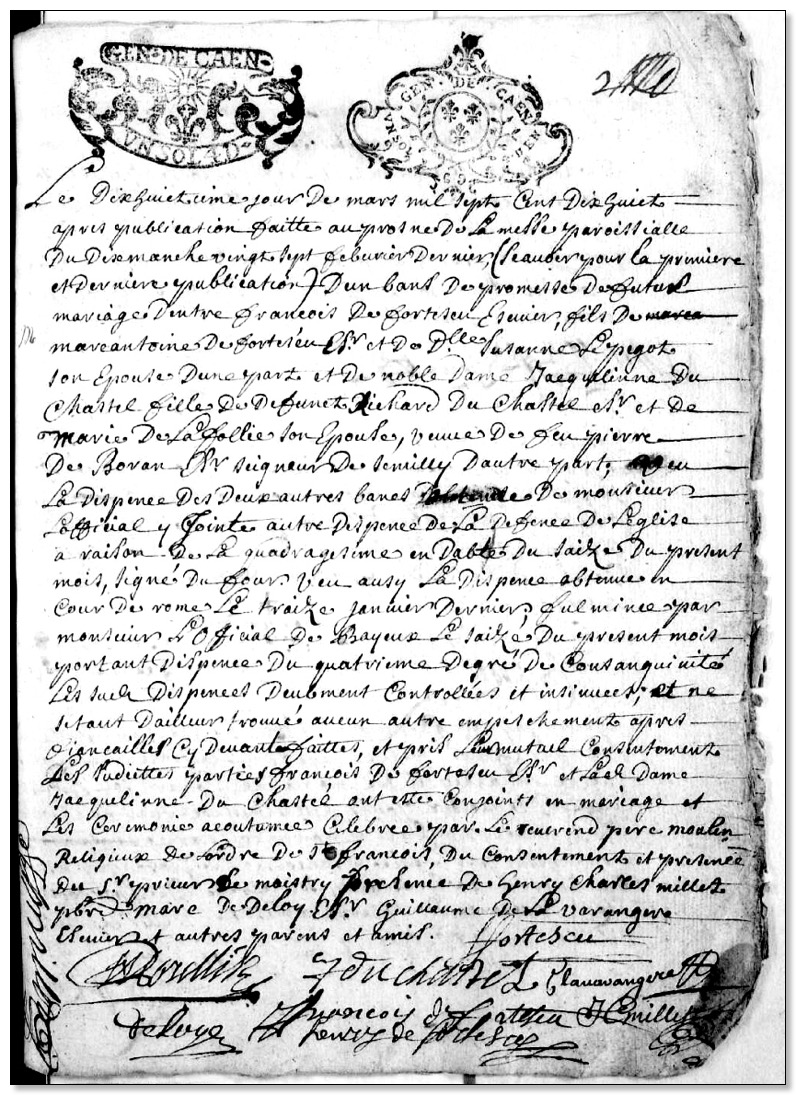 GEN. DE CAEN
VN SOL AD
GEN. DE CAEN
VN SOL
2
Le Dixhuict ieme jour De mars mil sept Cent Dixhuict
apres publication faitte au prosne De La messe paroissialle
Du Dixmanche vingt sept feburier Dernier, (sçauoir pour la premiere
et Derniere publication) D'un bans De promesse De futur
mariage D'entre francois De fortescu Escuier, fils De
marcantoine De fortescu Esr. et De Dlle Susanne Le pegot
son Epouse D'une part et De noble Dame Jacquelinne Du
Chastel fille De Deffunct Richard Du Chastel esr. et De
marie De La follie son Epouse, veuve De feu pierre
De Boran Esr seigneur De Semilly D'autre part,
La Dispence Des Deux autres bancs De monsieur
L'official y Jointe autre Dispence De La Deffence De L'eglise
a raison De La quadragesime en Datte Du saize Du present
mois, signé Du four. veu aussy La Dispence obtenue en
Cour De rome Le traize janvier Dernier fulminee par
monsieur L'Official De Bayeux Le saizé Du present mois
portant Dispence Du quatrieme Degré De Consanguinité
Les sud. Dispences Deuement Controllées et insinuees, et ne
s'etant D'ailleur trouué aucun autre empeschement apres
fiancailles Cy Devant faittes, et pris Leur mutuel Consentement
Les susdittes parties françois De fortescu Esr et Lad. Dame
Jacquelinne Du Chastel ont esté Conjoints en mariage et
Les Ceremonie acoutumee Celebree par Le reuerend pere moulin
Religieux de L'ordre De St francois, Du Consentement et presence
du Sr prieur De moistry presence De Henry Charles millet
pbre. marc De Deloy Esr. Guillaume De La varangere
Escuier et autres parens et amis. fortescu
J du chastel C lauarangere
Deloye francois de fortescu
henry de fortescu